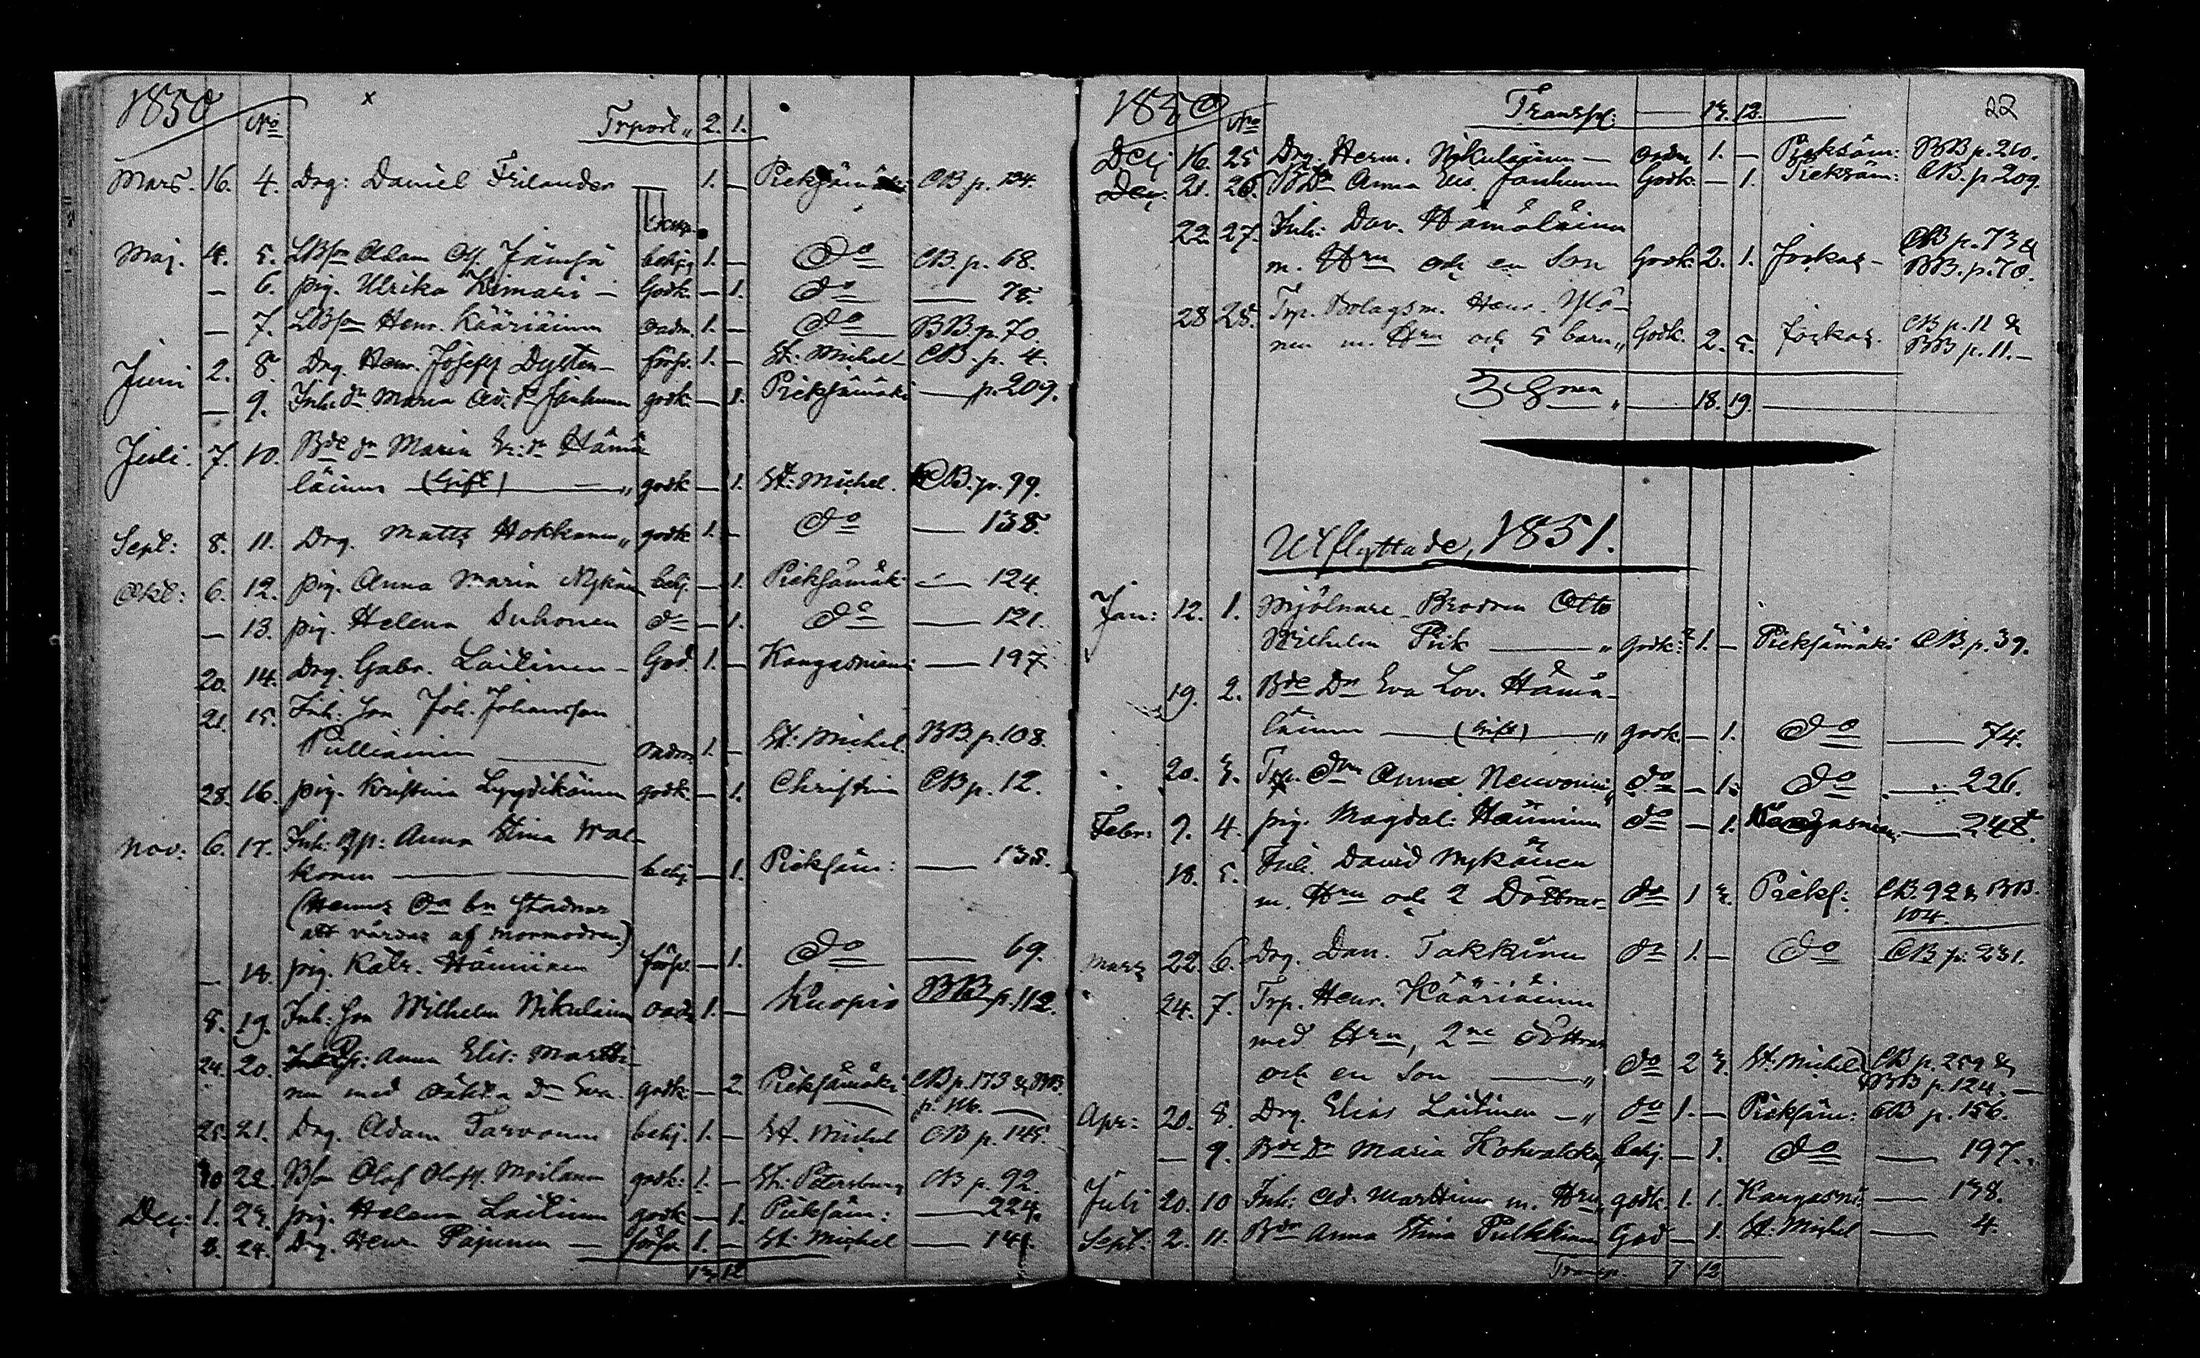 1850
No
Trport „ 2. 1.
Mars. 16. 4. Drg: Daniel Frilander — 1. — CB p. 124.
Maj. 4. 5. LBson Adam Jämsä 1. — Do CB. p. 68.
— 6. pig. Ulrika Kimari — Godk. — 1. Do — 78.
— 7. LBson Henr. Kääriäinen oadm. 1. — Do BB p. 70.
Juni 2. 8. Drg. Henr. Josefss Dylten — försv. 1. — St. Michel CB. p. 4.
— 9. Inh: dr. Maria Janhunen godk. — 1. Pieksämäki — p. 209.
Juli. 7. 10. Bde dr Maria Er: dr Hämä
läinen (Gift) — „ godk — 1. St: Michel. CB. p. 99.
Sept: 8. 11. Drg. Matts Hokkanen „ godk 1. — Do — 138.
Okt: 6. 12. pig. Anna Maria Nykän behj. — 1. Pieksämäk — 124.
— 13. pig. Helena Suhonen do — 1. Do — 121.
20. 14. Drg. Gabr. Laitinen — God 1. — Kangasniemi — 197
21. 15. Inh: son Joh. Johansson
Pulliainen — oadm. 1. — St. Michel BB p. 108.
28. 16. pig. Kristina Lyydikäinen godk — 1. Christina CB p. 12.
Nov: 6. 17. Inh: Anna Stina Wal-
konen — behj — 1. Pieksäm: — 138.
(Hennes do stadnar
att vårdas af mormodren)
— 18. pig. Katr. Hänninen försv. — 1. Do — 69.
8. 19. Inh: son Wilhelm Nikulainen oadm 1. — Kuopio BB p. 112.
24. 20. Anna Elis: Martti-
nen med oäkta dr Eva. godk. — 2. Pieksämäki CB p. 173 & BB.
p. 116.
25. 21. Drg. Adam Tarvonen behj. 1. — St. Michel CB p. 145.
30 22. Bson Olof Olofss. Moilanen godk: 1. — St: Petersburg CB p. 92.
Dec: 1. 23. pig. Helena Laitinen godk — 1. Pieksäm: — 224.
8. 24. Drg. Henr Pajunen — försv 1. — St: Michel — 141.
13 12
1850
No
Transp: — 13. 12.
22
Dec: 16. 25 Drg. Herm. Nikulainen — oadm 1. — Pieksäm: BB p. 210.
Dec: 21. 26. Anna Elis. Janhunen Godk. — 1. Pieksäm: CB. p 209.
22. 27. Inh: Dav. Hämäläinen
m. Hru och en Son Godk. 2. 1. Jockas — CB p. 73 &
BB. p. 70.
28 28. Trp. Bolagsm. Henr. Ylö-
nen m. Hru och 5 barn „ Godk. 2. 5. Jockas. CB p. 11 &
BB p. 11. —
Summa „ — 18. 19.
Utflyttade, 1851.
Jan: 12. 1. Mjölnare Brodren Otto
Wilhelm Pik — „ godk: 1. — Pieksämäki CB. p. 39.
19. 2. Bde Dr Eva Lov. Hämä-
läinen — (Gift) — „ godk. — 1. Do — 74.
20. 3. Trp. dr Anna Neuvonen „ do — 1. Do — 226.
Febr: 9. 4. pig. Magdal. Hänninen do — 1. Kangasniemi — 248.
18. 5. Inh. David Nykänen
m. Hru och 2 Döttrar do 1 3. Pieks: CB. 92 & BB.
104.
Mars 22. 6. Drg. Dan. Takkinen do 1. — Do CB p. 231.
24. 7. Trp. Henr. Kääriäinen
med Hru, 2ne Döttrar
och en Son — „ do 2 3. St: Michel CB p. 259 &
BB p. 124. —
Apr: 20. 8. Drg Elias Laitinen — „ do 1. — Pieksäm: CB p. 156.
— 9. Bde Dr Maria Kohvakka behj. — 1. Do — 197.
Juli 20. 10 Inh: Ad. Marttinen m. Hru godk. 1. 1. Kangasni: — 138.
Sept: 2. 11. Anna Stina Pulkkinen God — 1. St. Michel — 4.
Transp. 7 12